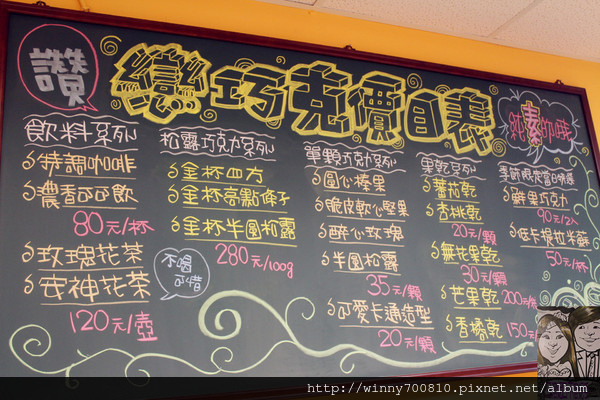 讚
戀巧克價目表
飲料系列
特調咖啡
濃香可可飲
80元/杯
玫瑰花茶
安神花茶
120元/壺
不喝
可惜
松露巧克力系列
金杯四方
金杯亮點條子
金杯半圓松露
280元/100g
單顆巧克力系列
圓心榛果
脆皮軟心堅果
醉心玫瑰
半圓松露
35元/顆
可愛卡通造型
20元/顆
果乾系列
蕃茄乾
香桃乾
20元/顆
無花果乾
30元/顆
芒果乾
200元
香橘乾
150元
素
季節限定當日現做
鮮果巧克力
90元/2入
低卡提拉米蘇
50元/杯
http://winny700810.pixnet.net/album